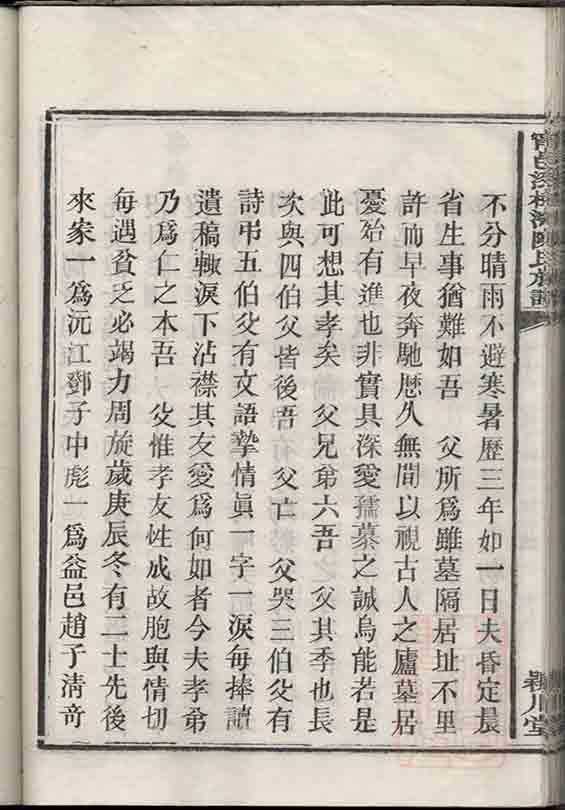 不分晴雨不避寒暑歷三年如一日夫昏定晨
省生事猶難如吾 父所爲雖墓隔居址不里
許而早夜奔馳歷久無間以視古人之廬墓居
憂殆有進也非實具深愛孺慕之誠烏能若是
此可想其孝矣 父兄弟六吾 父其季也長
次與四伯父皆後吾 父亡 父哭三伯父有
詩弔五伯父有文語摯情眞一字一淚每捧讀
遺稿輙淚下沾襟其友愛爲何如者今夫孝弟
乃爲仁之本吾 父惟孝友性成故胞與情切
每遇貧乏必竭力周旋歲庚辰冬有二士先後
來家一爲沅江鄧子中彪一爲益邑趙子清奇
陳氏族譜
潁川堂